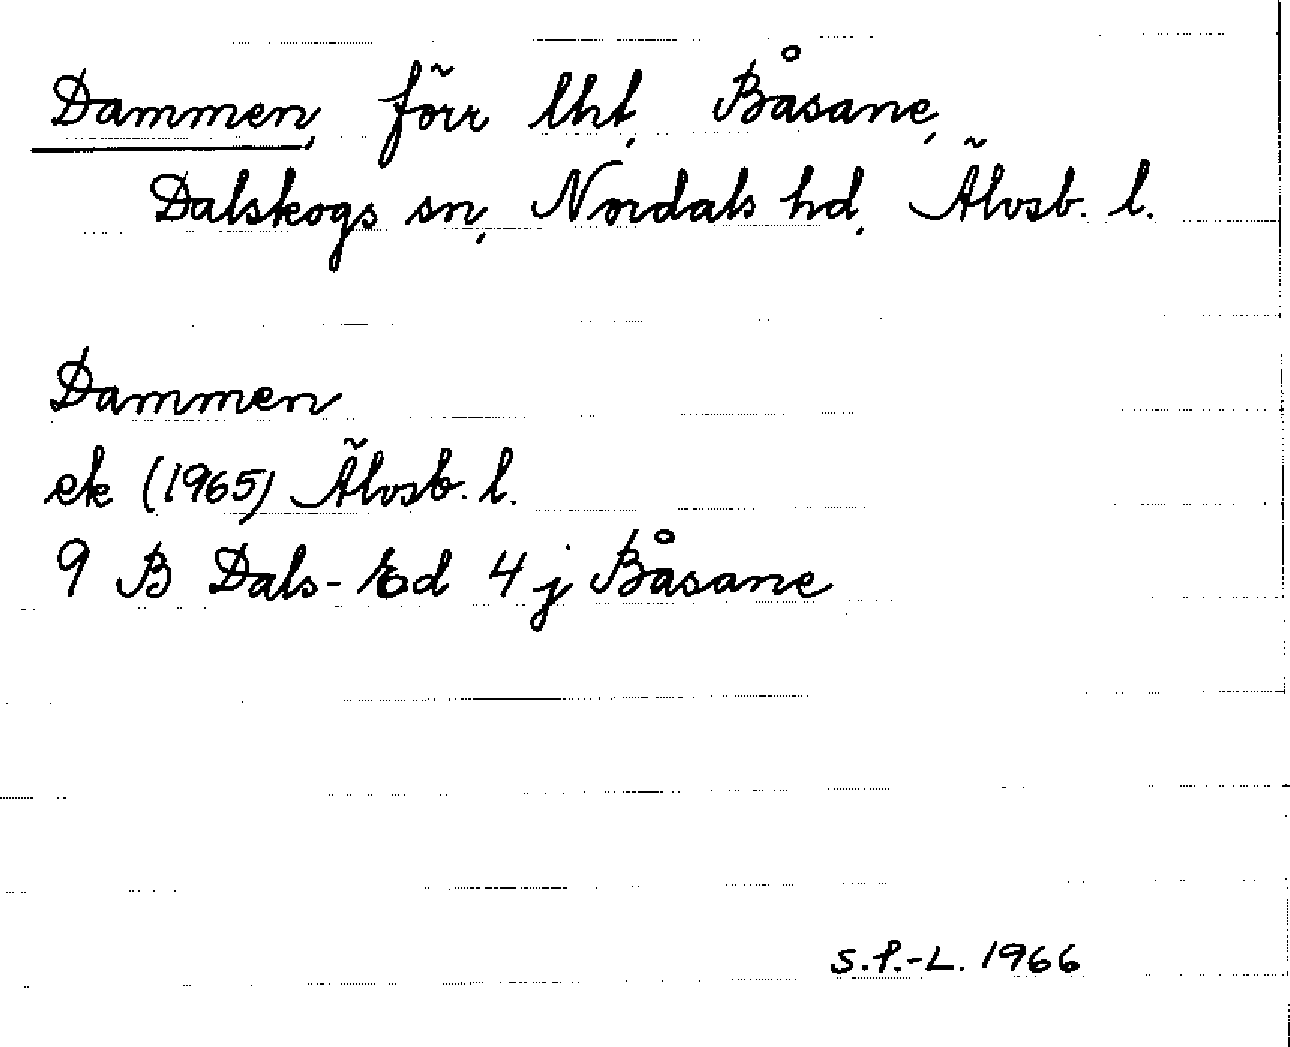 Dammen, förr lht, Båsane,
Dalskogs sn, Nordals hd, Älvsb. l.
Dammen
ek (1965) Älvsb. l.
9 B Dals-Ed 4 j Båsane
S.P.-L. 1966